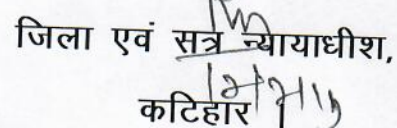 जिला एवं सत्र न्यायाधीश,
कटिहार।